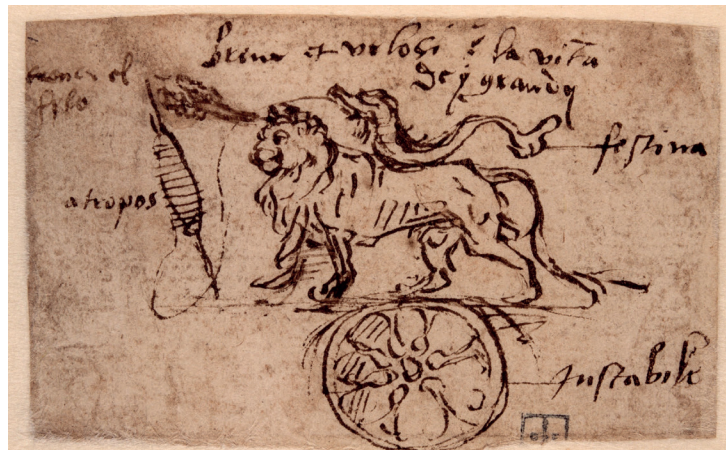 breue et velosi è la vita
de y grandi
tener el
filo
festina
atropos
Instabile